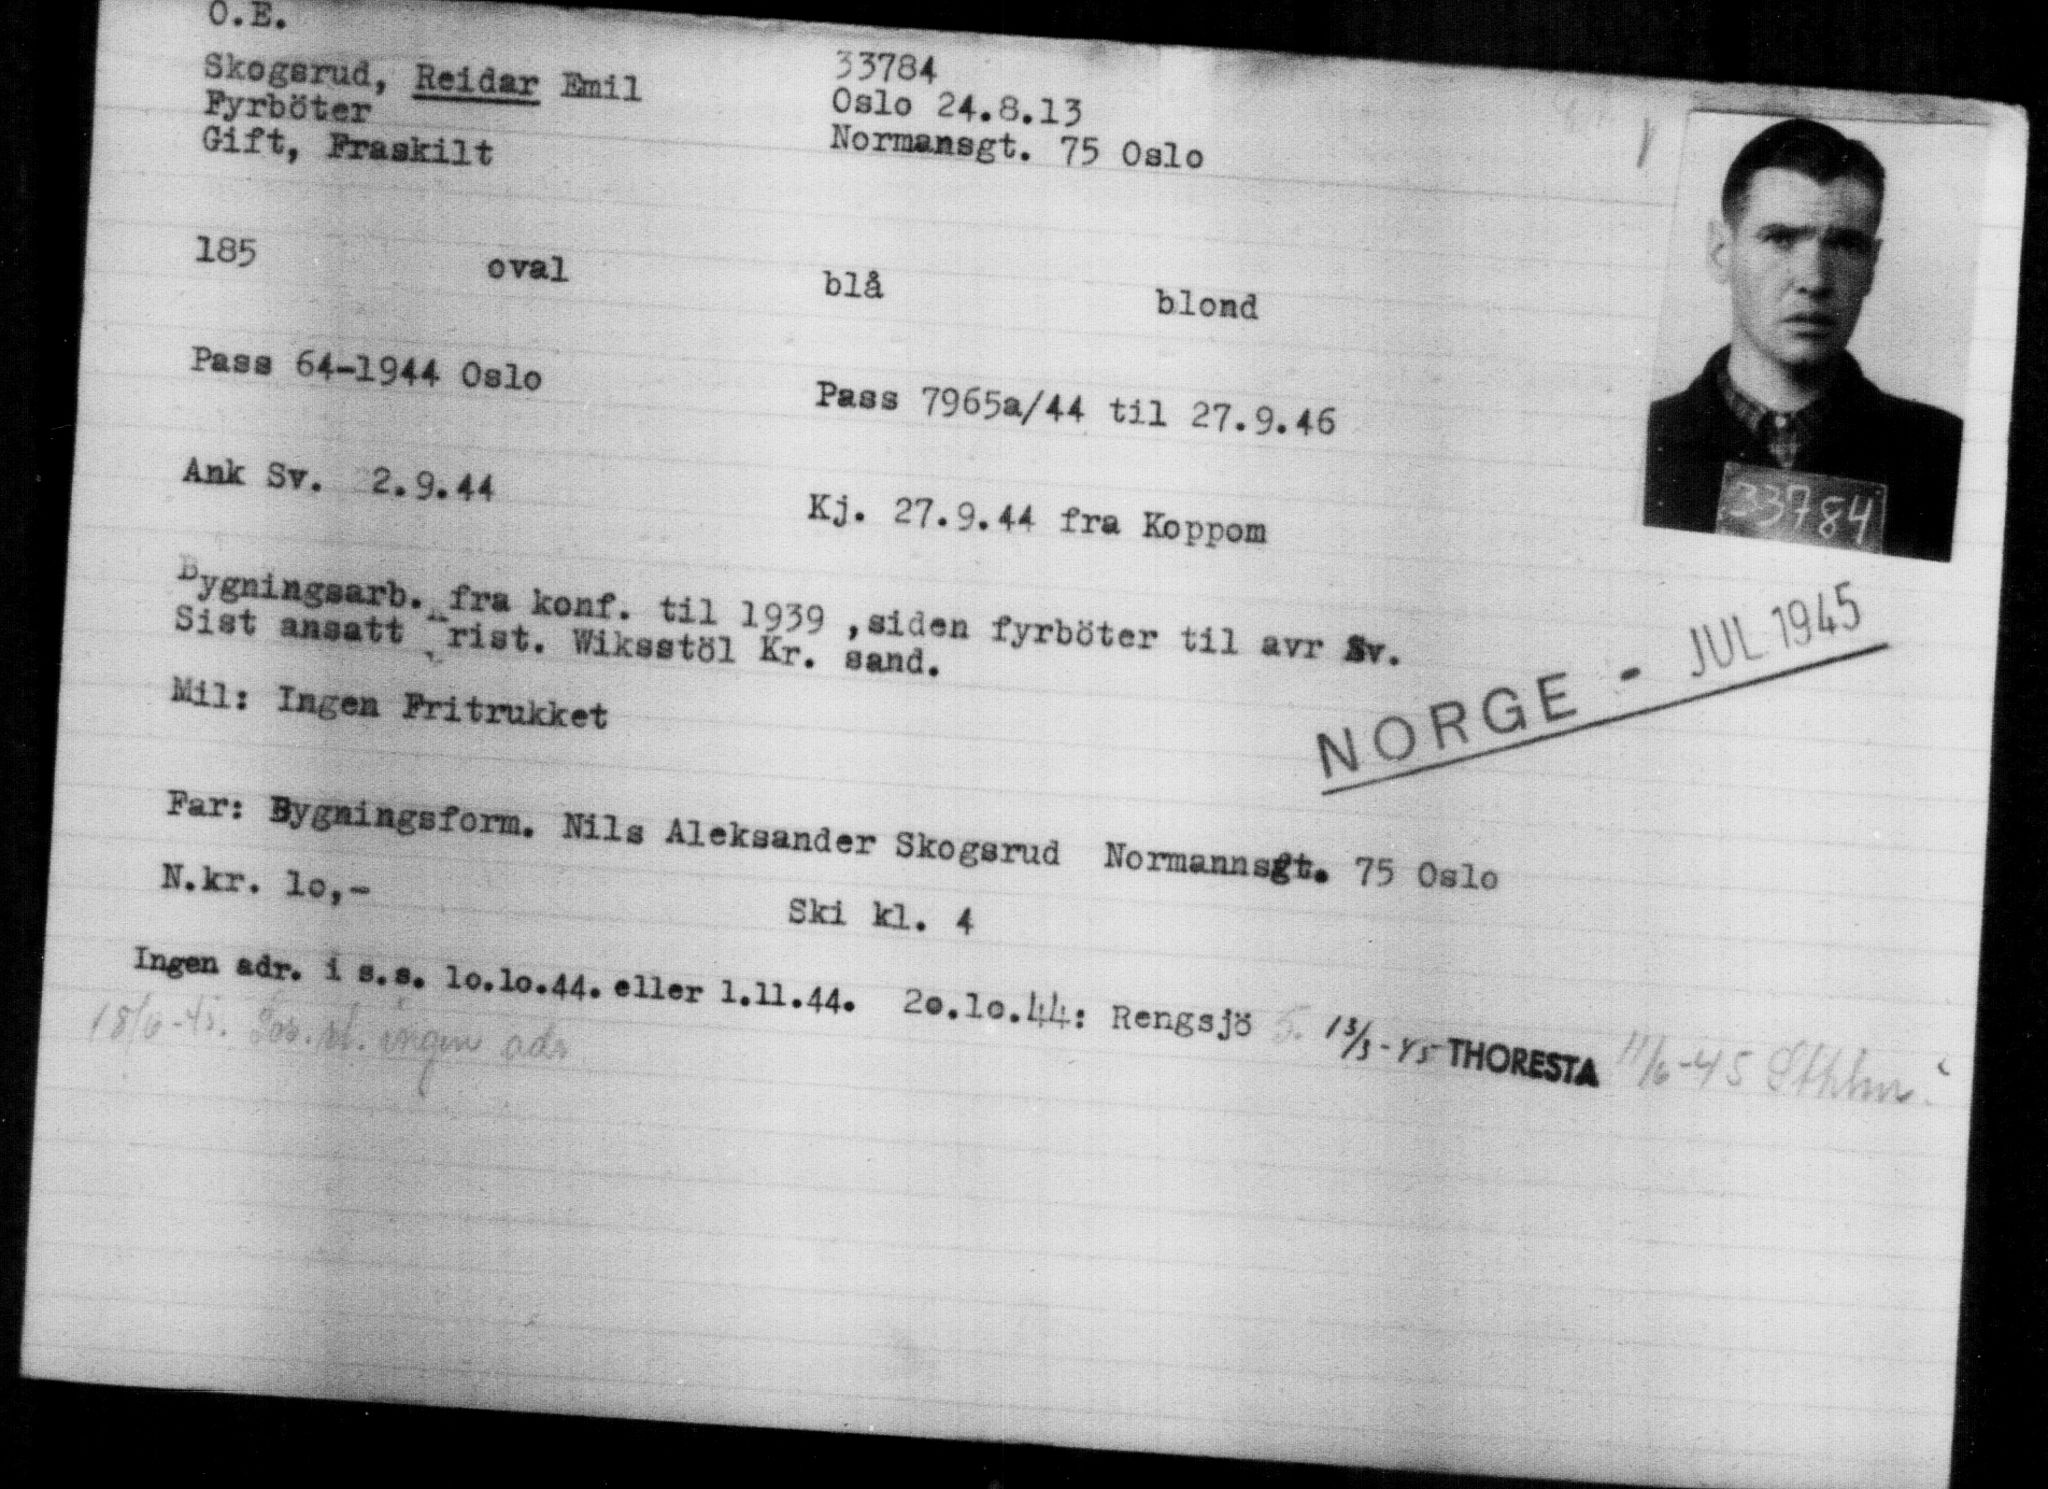 O.E.
Skogsrud, Reidar Emil 33784
Fyrböter Oslo 24.8.13
Gift, Fraskilt Normansgt. 75 Oslo
185 oval blå blond
Pass 64-1944 Oslo Pass 7965a/44 til 27.9.46
Ank Sv. 2.9.44 Kj. 27.9.44 fra Koppom
33784
Bygningsarb. fra konf. til 1939 ,siden fyrböter til avr Sv.
Sist ansatt rist. Wiksstöl Kr. sand.
NORGE - JUL 1945
Mil: Ingen Fritrukket
Far: Bygningsform. Nils Aleksander Skogsrud Normannsgt. 75 Oslo
N.kr. lo,- Ski kl. 4
Ingen adr. i s.s. lo.lo.44. eller l.ll.44. 2o.lo.44: Rengsjö 13/3-45 THORESTA 11/6-45 Sthlm.
ingen adr